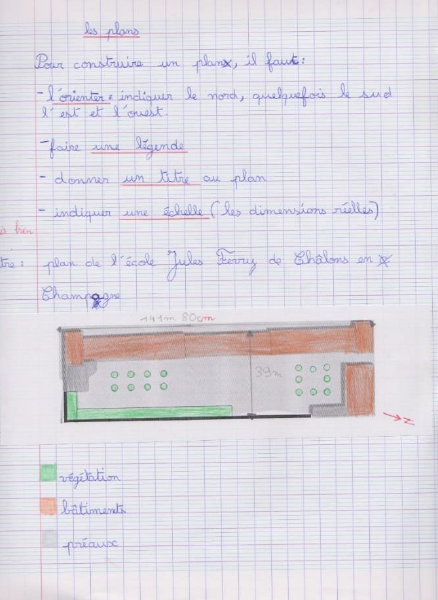 les plans
Pour construire un plan, il faut:
- l'orienter: indiquer le nord, quelquefois le sud
l'est et l'ouest.
- faire une légende
- donner un titre au plan
- indiquer une échelle (les dimensions réelles)
bien
tre: plan de l'école Jules Ferry de Châlons en
Champagne
141m 80cm
39m
N
végétation
bâtiments
préaux